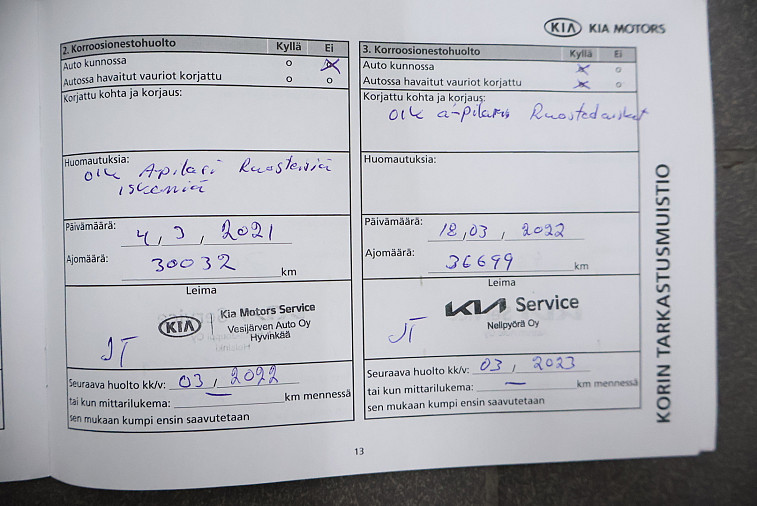 KIA KIA MOTORS
2. Korroosionestohuolto Kyllä Ei
Auto kunnossa o
Autossa havaitut vauriot korjattu o o
Korjattu kohta ja korjaus:
Huomautuksia:
oik A-pilari Ruosteisia
iskemiä
Päivämäärä: 4, 3, 2021
Ajomäärä: 30032 km
Leima
KIA Kia Motors Service
Vesijärven Auto Oy
Hyvinkää
JT
Seuraava huolto kk/v: 03, 2022
tai kun mittarilukema: — km mennessä
sen mukaan kumpi ensin saavutetaan
3. Korroosionestohuolto Kyllä Ei
Auto kunnossa x o
Autossa havaitut vauriot korjattu x o
Korjattu kohta ja korjaus:
oik a-pilarin
Huomautuksia:
Päivämäärä: 18,03, 2022
Ajomäärä: 36699 km
Leima
KIA Service
Nelipyörä Oy
JT
Seuraava huolto kk/v: 03, 2023
tai kun mittarilukema: — km mennessä
sen mukaan kumpi ensin saavutetaan
KORIN TARKASTUSMUISTIO
13